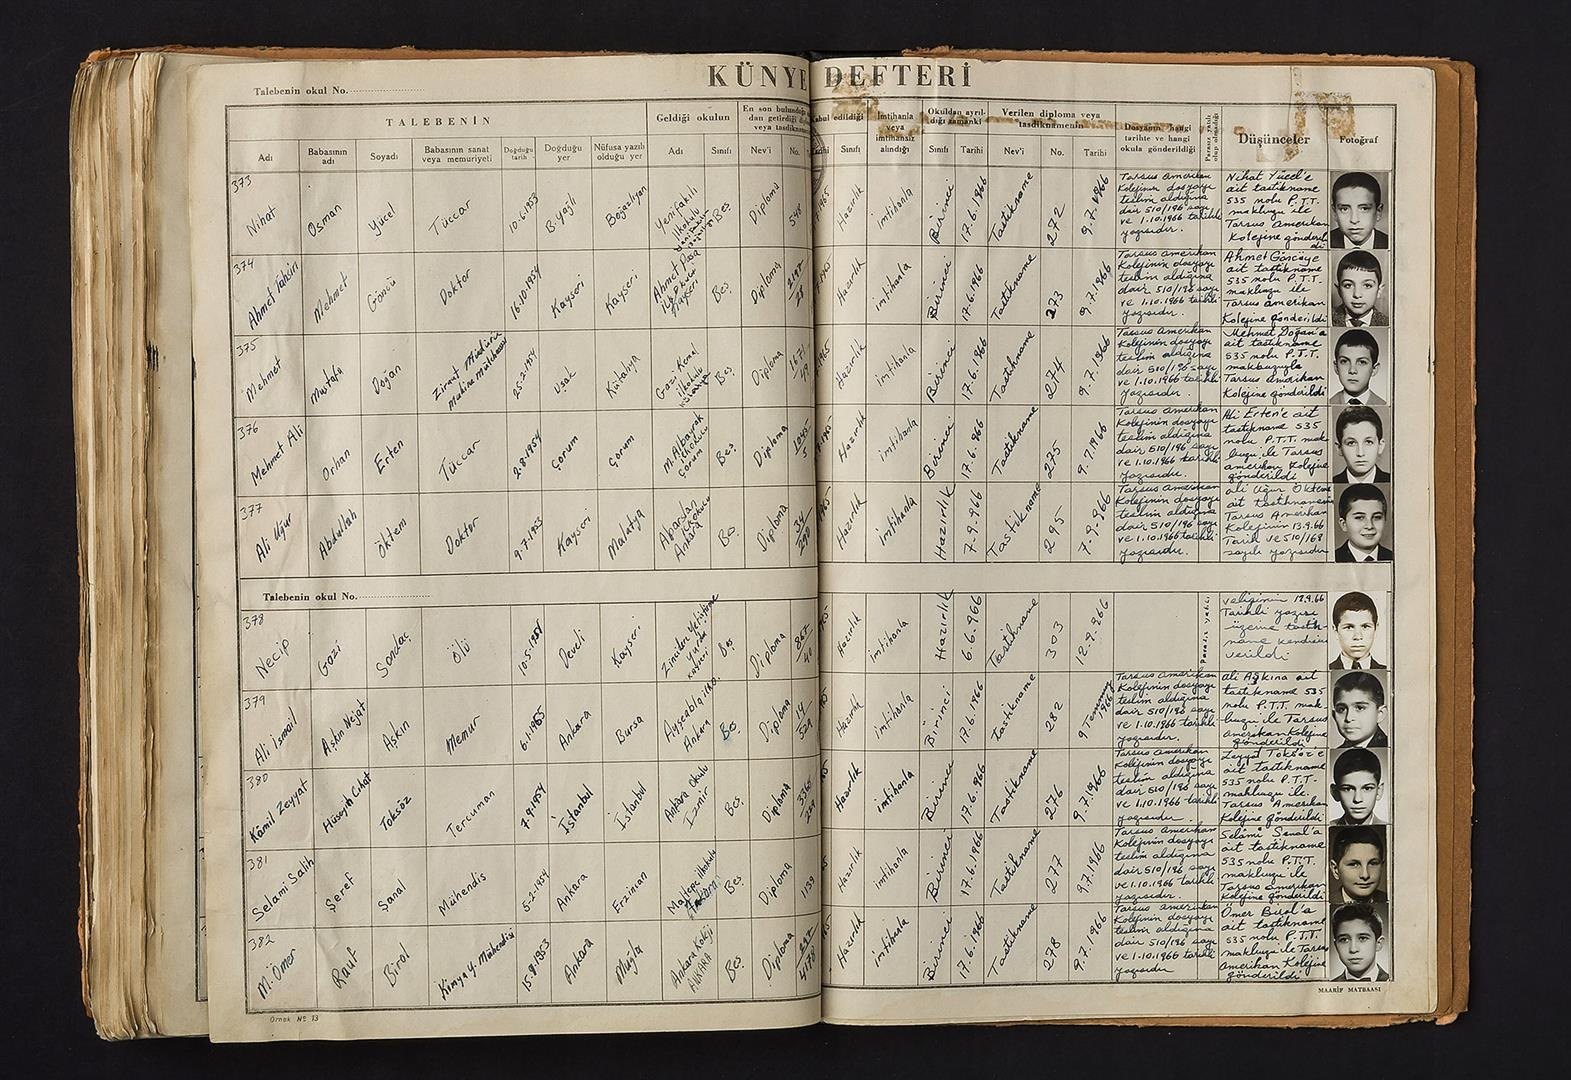 KÜNYE DEFTERİ
Talebenin okul No.
TALEBENİN
Geldiği okulun
En son bulunduğu
dan getirdiği
veya tasdikname
Kabul edildiği
İmtihanla
veya
imtihansız
alındığı
Okuldan ayrıl-
dığı zamanki
Verilen diploma veya
tasdiknamenin
Dosyanın hangi
tarihte ve hangi
okula gönderildiği
Parasız yatılı
olup olmadığı
Düşünceler
Fotoğraf
Adı
Babasının
adı
Soyadı
Babasının sanat
veya memuriyeti
Doğduğu
tarih
Doğduğu
yer
Nüfusa yazılı
olduğu yer
Adı
Sınıfı
Nev'i
No.
Tarihi
Sınıfı
Sınıfı
Tarihi
Nev'i
No.
Tarihi
373
Nihat Osman Yücel Tüccar 10.6.1953 Boğazlıyan
Beş Diploma 548 Hazırlık imtihanla Birinci 17.6.1966 Tastikname 272 9.7.1966
Tarsus Amerikan
Kolejinin dosyayı
teslim aldığına
dair 510/196 sayı
ve 1.10.1966 tarihli
yazısıdır.
Nihat Yücel'e
ait tastikname
535 nolu P.T.T.
makbuzu ile
Tarsus Amerikan
Kolejine gönderil
di
374
Ahmet Tahsin Mehmet Göncü Doktor 16.10.1954 Kayseri Kayseri
Ahmet Paşa
Kayseri
Beş Diploma Hazırlık imtihanla Birinci 17.6.1966 Tastikname 273 9.7.1966
Tarsus Amerikan
Kolejinin dosyayı
teslim aldığına
dair 510/196 sayı
ve 1.10.1966 tarihli
yazısıdır.
Ahmet Göncüye
ait tastikname
535 nolu P.T.T.
makbuzu ile
Tarsus Amerikan
Kolejine gönderildi
375
Mehmet Mustafa Doğan Ziraat 25.2.1954 Uşak Kütahya
Gazi Kemal
İlkokulu
Kütahya
Beş Diploma Hazırlık imtihanla Birinci 17.6.1966 Tastikname 274 9.7.1966
Tarsus Amerikan
Kolejinin dosyayı
teslim aldığına
dair 510/196 sayı
ve 1.10.1966 tarihli
yazısıdır.
Mehmet Doğan'a
ait tastikname
535 nolu P.T.T.
makbuzuyla
Tarsus Amerikan
Kolejine gönderildi
376
Mehmet Ali Orhan Erten Tüccar 2.8.1954 Çorum Çorum
Beş Diploma Hazırlık imtihanla Birinci 17.6.966 Tastikname 275 9.7.1966
Tarsus Amerikan
Kolejinin dosyayı
teslim aldığına
dair 510/196 sayı
ve 1.10.1966 tarihli
yazısıdır.
Ali Erten'e ait
tastikname 535
nolu P.T.T. mak
buzu ile Tarsus
Amerikan Kolejine
gönderildi
377
Ali Uğur Abdullah Öktem Doktor 9.7.1953 Kayseri Malatya
Ankara
Beş Diploma 34/290 Hazırlık imtihanla Hazırlık 7.9.966 Tastikname 295 7.9.966
Tarsus Amerikan
Kolejinin dosyayı
teslim aldığına
dair 510/196 sayı
ve 1.10.1966 tarihli
yazısıdır.
Ali Uğur Öktem
ait tastiknamenin
Tarsus Amerikan
Kolejinin 13.9.66
Tarih ve 510/168
sayılı yazısıdır
Talebenin okul No.
378
Necip Gazi Sandaç Ölü 10.5.1954 Develi Kayseri
Zincidere Yetiştirme
Yurdu
Kayseri
Beş Diploma 867/40 Hazırlık imtihanla Hazırlık 6.6.966 Tastikname 303 12.9.966
Parasız yatılı
velisinin 12.9.66
Tarihli yazısı
üzerine tastik-
name kendisine
verildi
379
Ali İsmail Aşkın Nejat Aşkın Memur 6.1.1955 Ankara Bursa
Ayşeabla ilko.
Ankara
Beş Diploma 14/529 Hazırlık imtihanla Birinci 17.6.1966 Tastikname 282 9 Temmuz
1966
Tarsus Amerikan
Kolejinin dosyayı
teslim aldığına
dair 510/196 sayı
ve 1.10.1966 tarihli
yazısıdır.
Ali Aşkına ait
tastikname 535
nolu P.T.T. mak
buzu ile Tarsus
Amerikan Kolejine
gönderildi
380
Kâmil Zeyyat Hüseyin Cihat Toksöz Tercuman 7.9.1954 İstanbul İstanbul
Ankara Okulu
İzmir
Beş Diploma Hazırlık imtihanla Birinci 17.6.966 Tastikname 276 9.7.1966
Tarsus Amerikan
Kolejinin dosyayı
teslim aldığına
dair 510/196 sayı
ve 1.10.1966 tarihli
yazısıdır.
Zeyyat Toksöz'e
ait tastikname
535 nolu P.T.T.
makbuzu ile.
Tarsus Amerikan
Kolejine gönderildi
381
Selami Salih Şeref Şanal Mühendis 5.2.1954 Ankara Erzincan
Maltepe ilkokulu
Ankara
Beş Diploma 1139 Hazırlık imtihanla Birinci 17.6.1966 Tastikname 277 9.7.1966
Tarsus Amerikan
Kolejinin dosyayı
teslim aldığına
dair 510/196 sayı
ve 1.10.1966 tarihli
yazısıdır.
Selâmi Şanal'a
ait tastikname
535 nolu P.T.T.
makbuzu ile
Tarsus Amerikan
Kolejine gönderildi
382
M. Ömer Rauf Birol Kimya Y. Mühendisi 15.8.1953 Ankara Muğla
Ankara Koleji
ANKARA
Beş Diploma Hazırlık imtihanla Birinci 17.6.1966 Tastikname 278 9.7.1966
Tarsus Amerikan
Kolejinin dosyayı
teslim aldığına
dair 510/196 sayı
ve 1.10.1966 tarihli
yazısıdır
Ömer Birol'a
ait tastikname
535 nolu P.T.T.
makbuzu ile Tarsus
Amerikan Kolejine
gönderildi
Örnek No 13
MAARİF MATBAASI